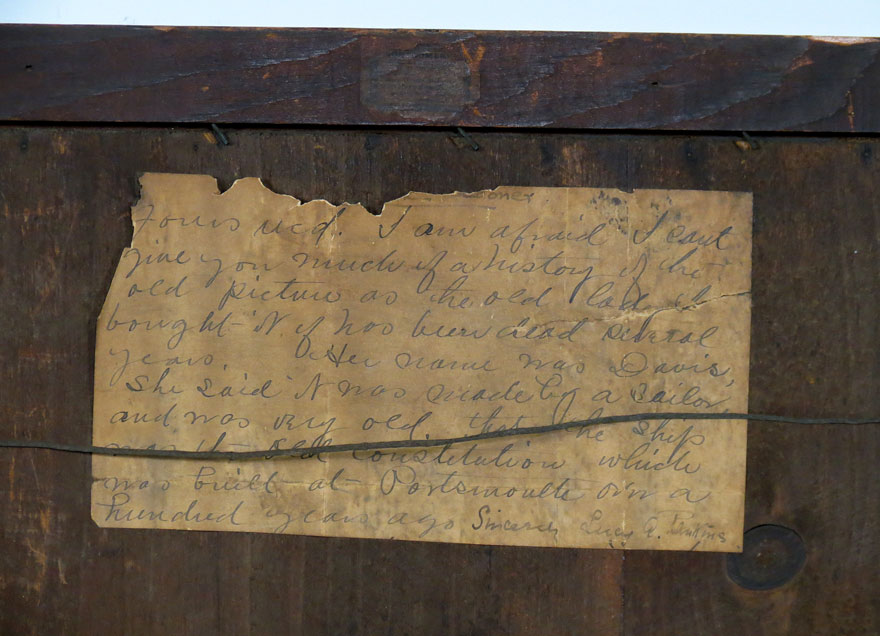 Yours rec'd. I am afraid I cant
give you much of a history of the
old picture as the old lady I
bought it of has been dead several
years. Her name was Davis,
She said it was made by a sailor,
and was very old that the ship
was the old Constitution which
was built at Portsmouth over a
hundred years ago Sincerely Lucy A. Jenkins